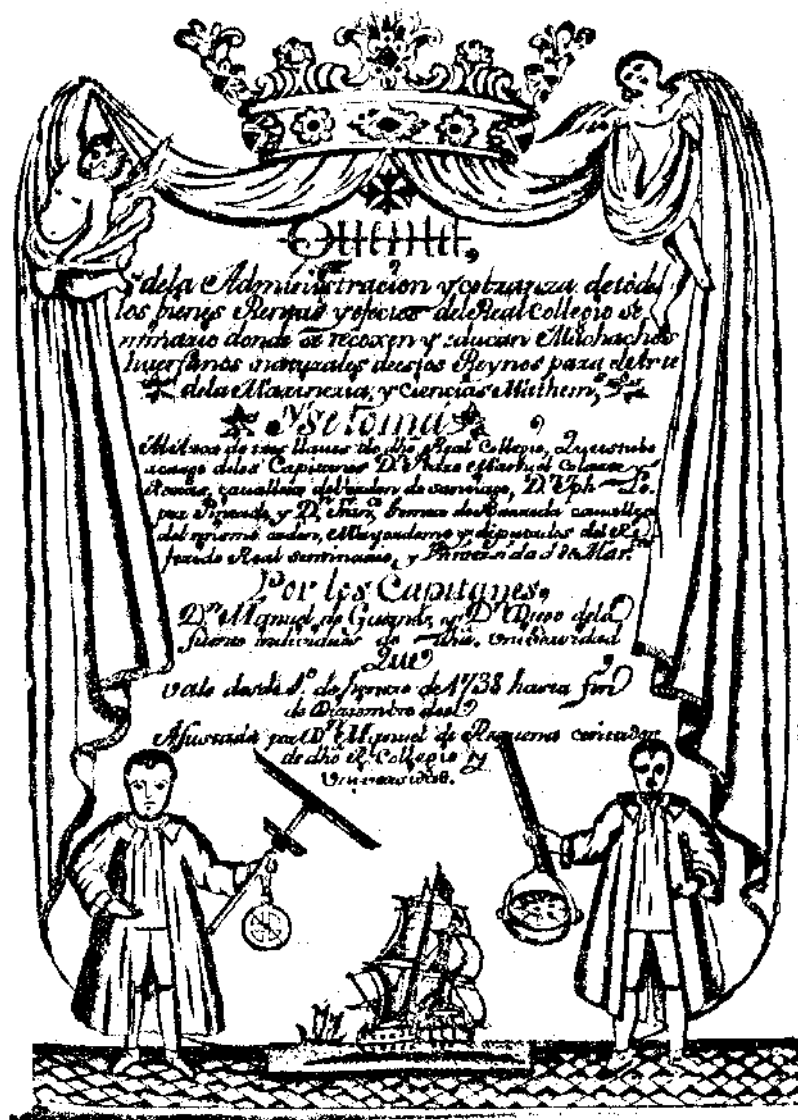 Quenta,
de la Administracion y cobranza de todos
los bienes Rentas y efectos del Real Collegio Se
minario donde se recoxen y educan Muchachos
huerfanos naturales destos Reynos para el Arte
de la Marineria, y Ciencias Mathem,
Y se toma
de tres llaves de dho Real Collegio, Que estubo
a cargo de los Capitanes Dn Pedro Manuel Colarte
cavallero del orden de Santiago, Dn Jph Lo
pez Pintado, y Dn Franco cavallero
del mismo orden, Mayordomo y diputados del Re
ferido Real Seminario, y Universidad de Mar.
Por los Capitanes,
Dn Manuel de y Dn Diego de la
fuente individuos de dha. Universidad
Que
Vale desde 1o. de henero de 1738 hasta fin
de Diziembre de el
Ajustada por Dn Miguel de Requena contador
de dho Rl. Collegio y
Universidad.